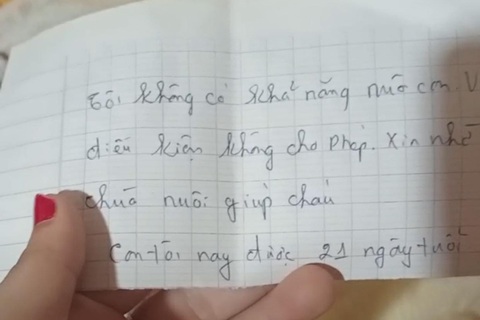 Tôi không có khả năng nuô con. V
điều kiện không cho phép. Xin nhờ
chuà nuôi giúp cháu
Con tôi nay được 21 ngày tuổi